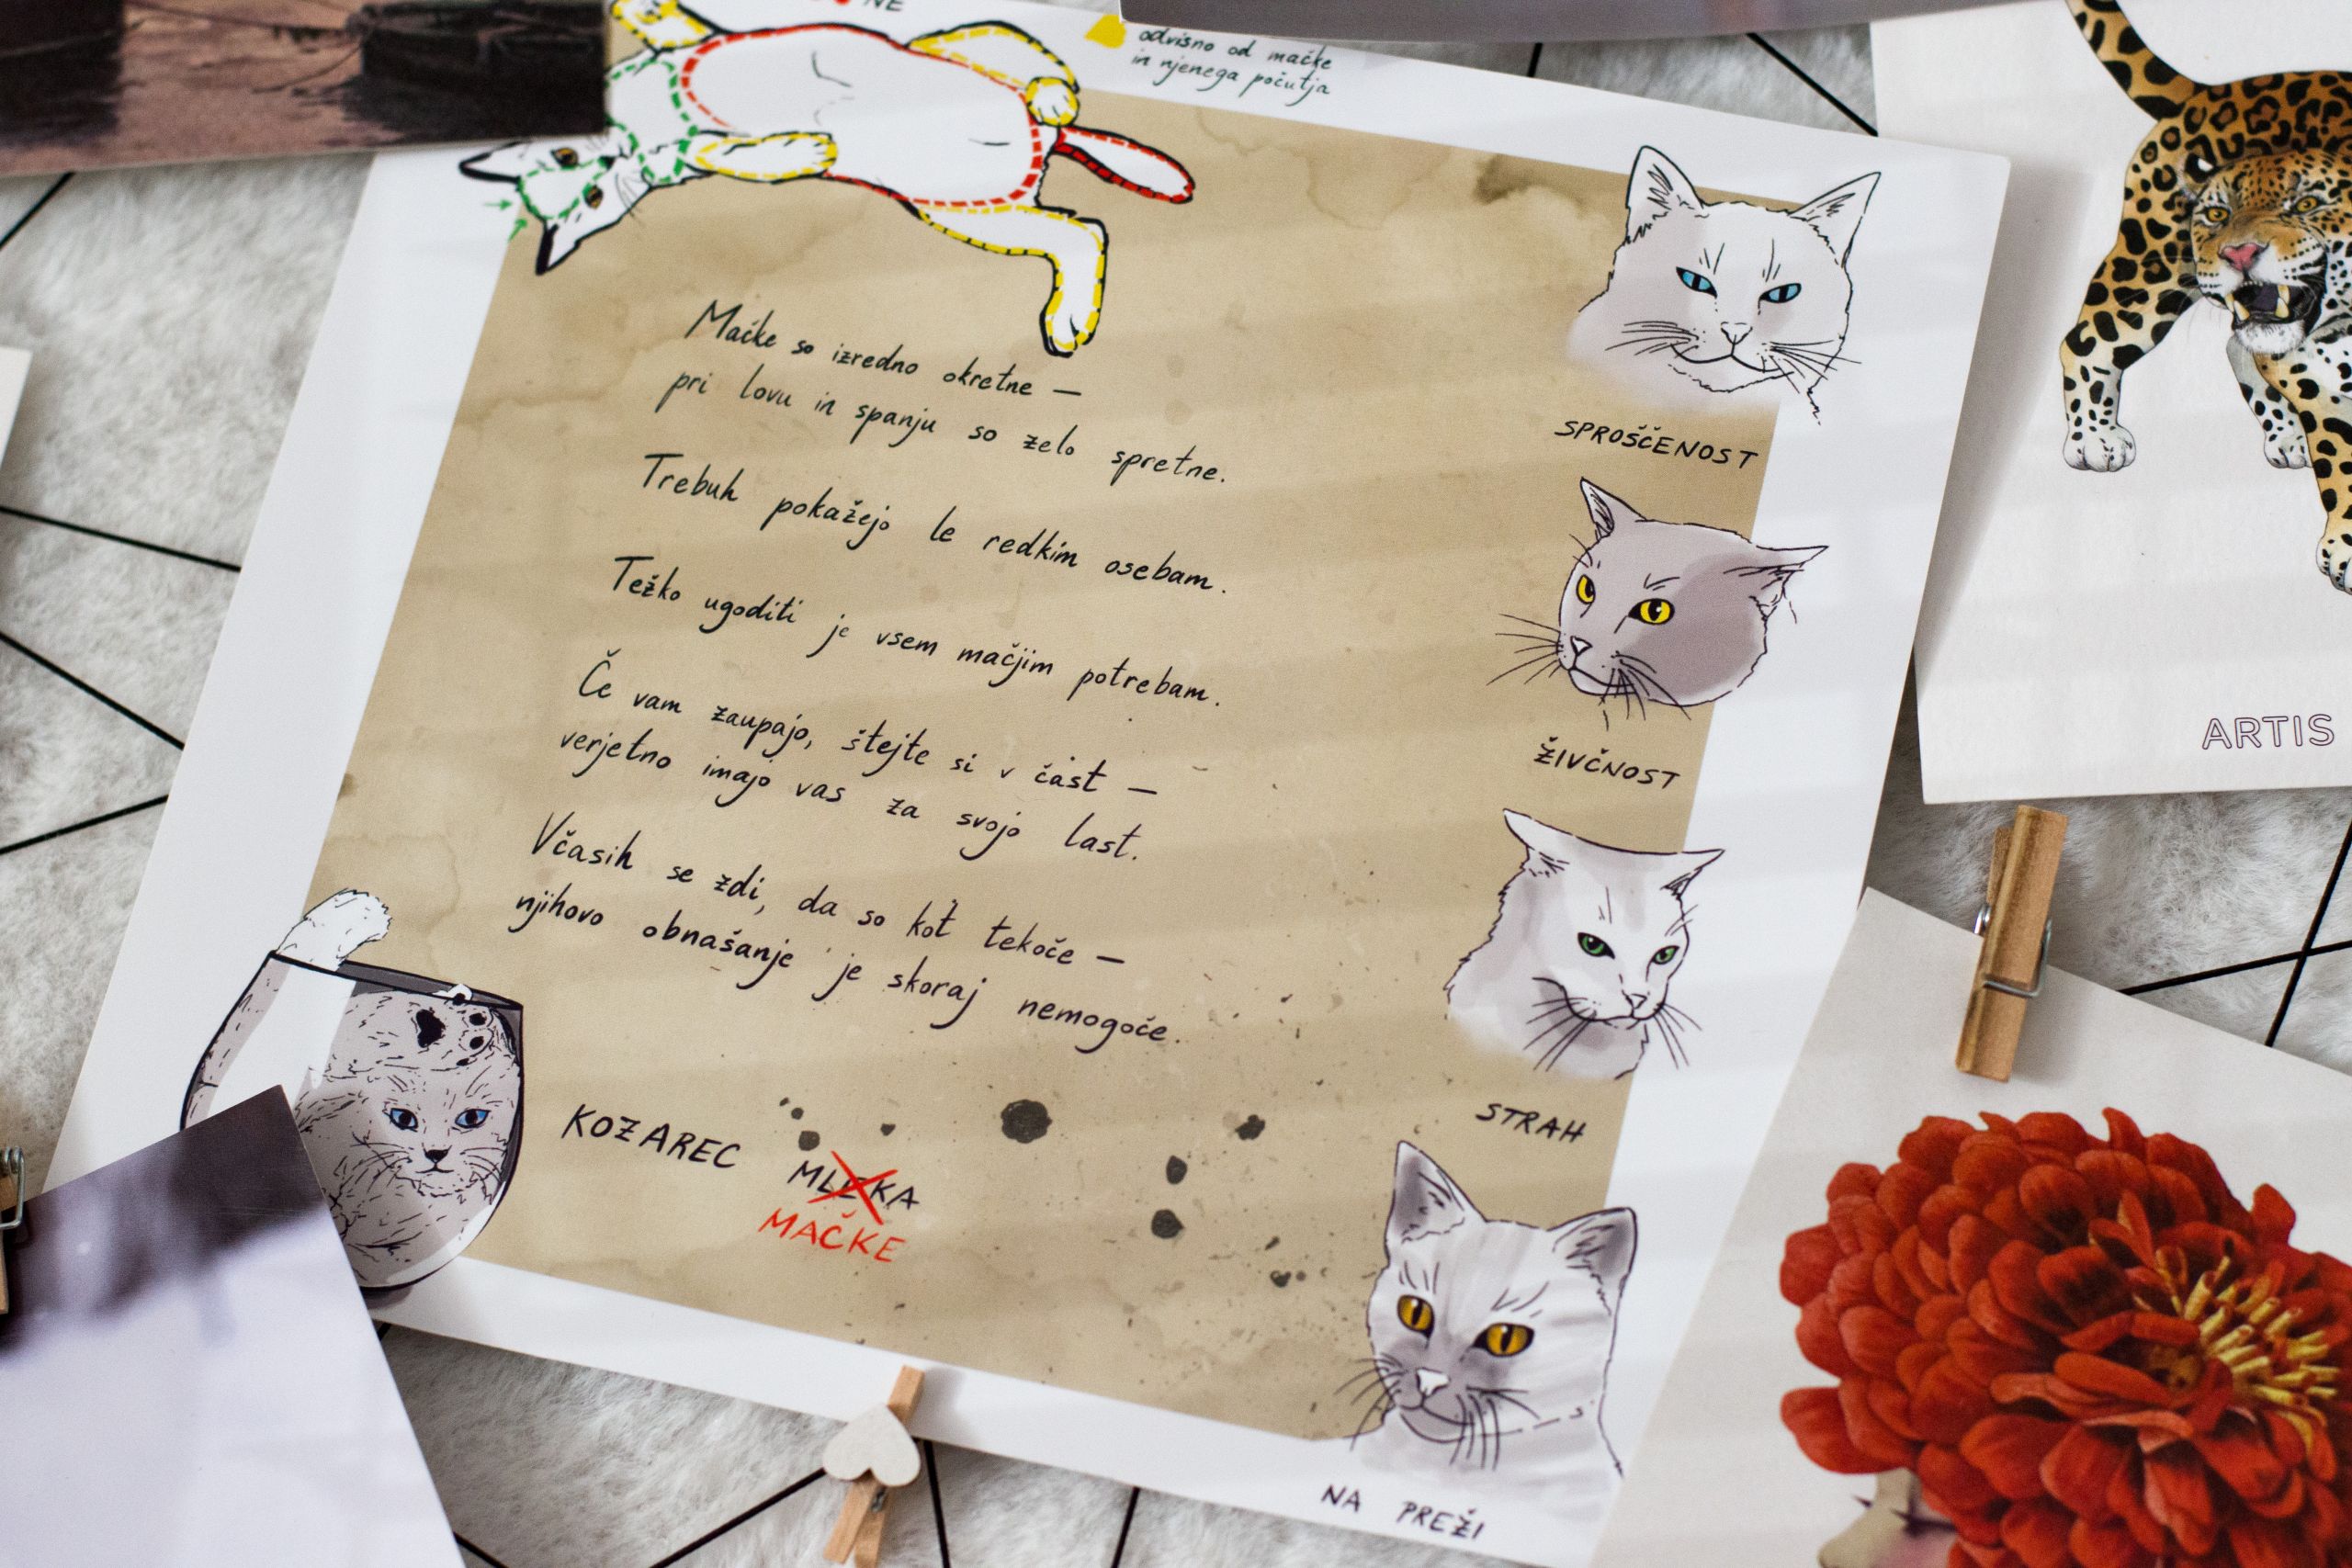 NE
odvisno od mačke
in njenega počutja
Mačke so izredno okretne –
pri lovu in spanju so zelo spretne.
Trebuh pokažejo le redkim osebam.
Težko ugoditi je vsem mačjim potrebam.
Če vam zaupajo, štejte si v čast –
verjetno imajo vas za svojo last.
Včasih se zdi, da so kot tekoče –
njihovo obnašanje je skoraj nemogoče.
KOZAREC MLEKA
MAČKE
SPROŠČENOST
ŽIVČNOST
STRAH
NA PREŽI
ARTIS